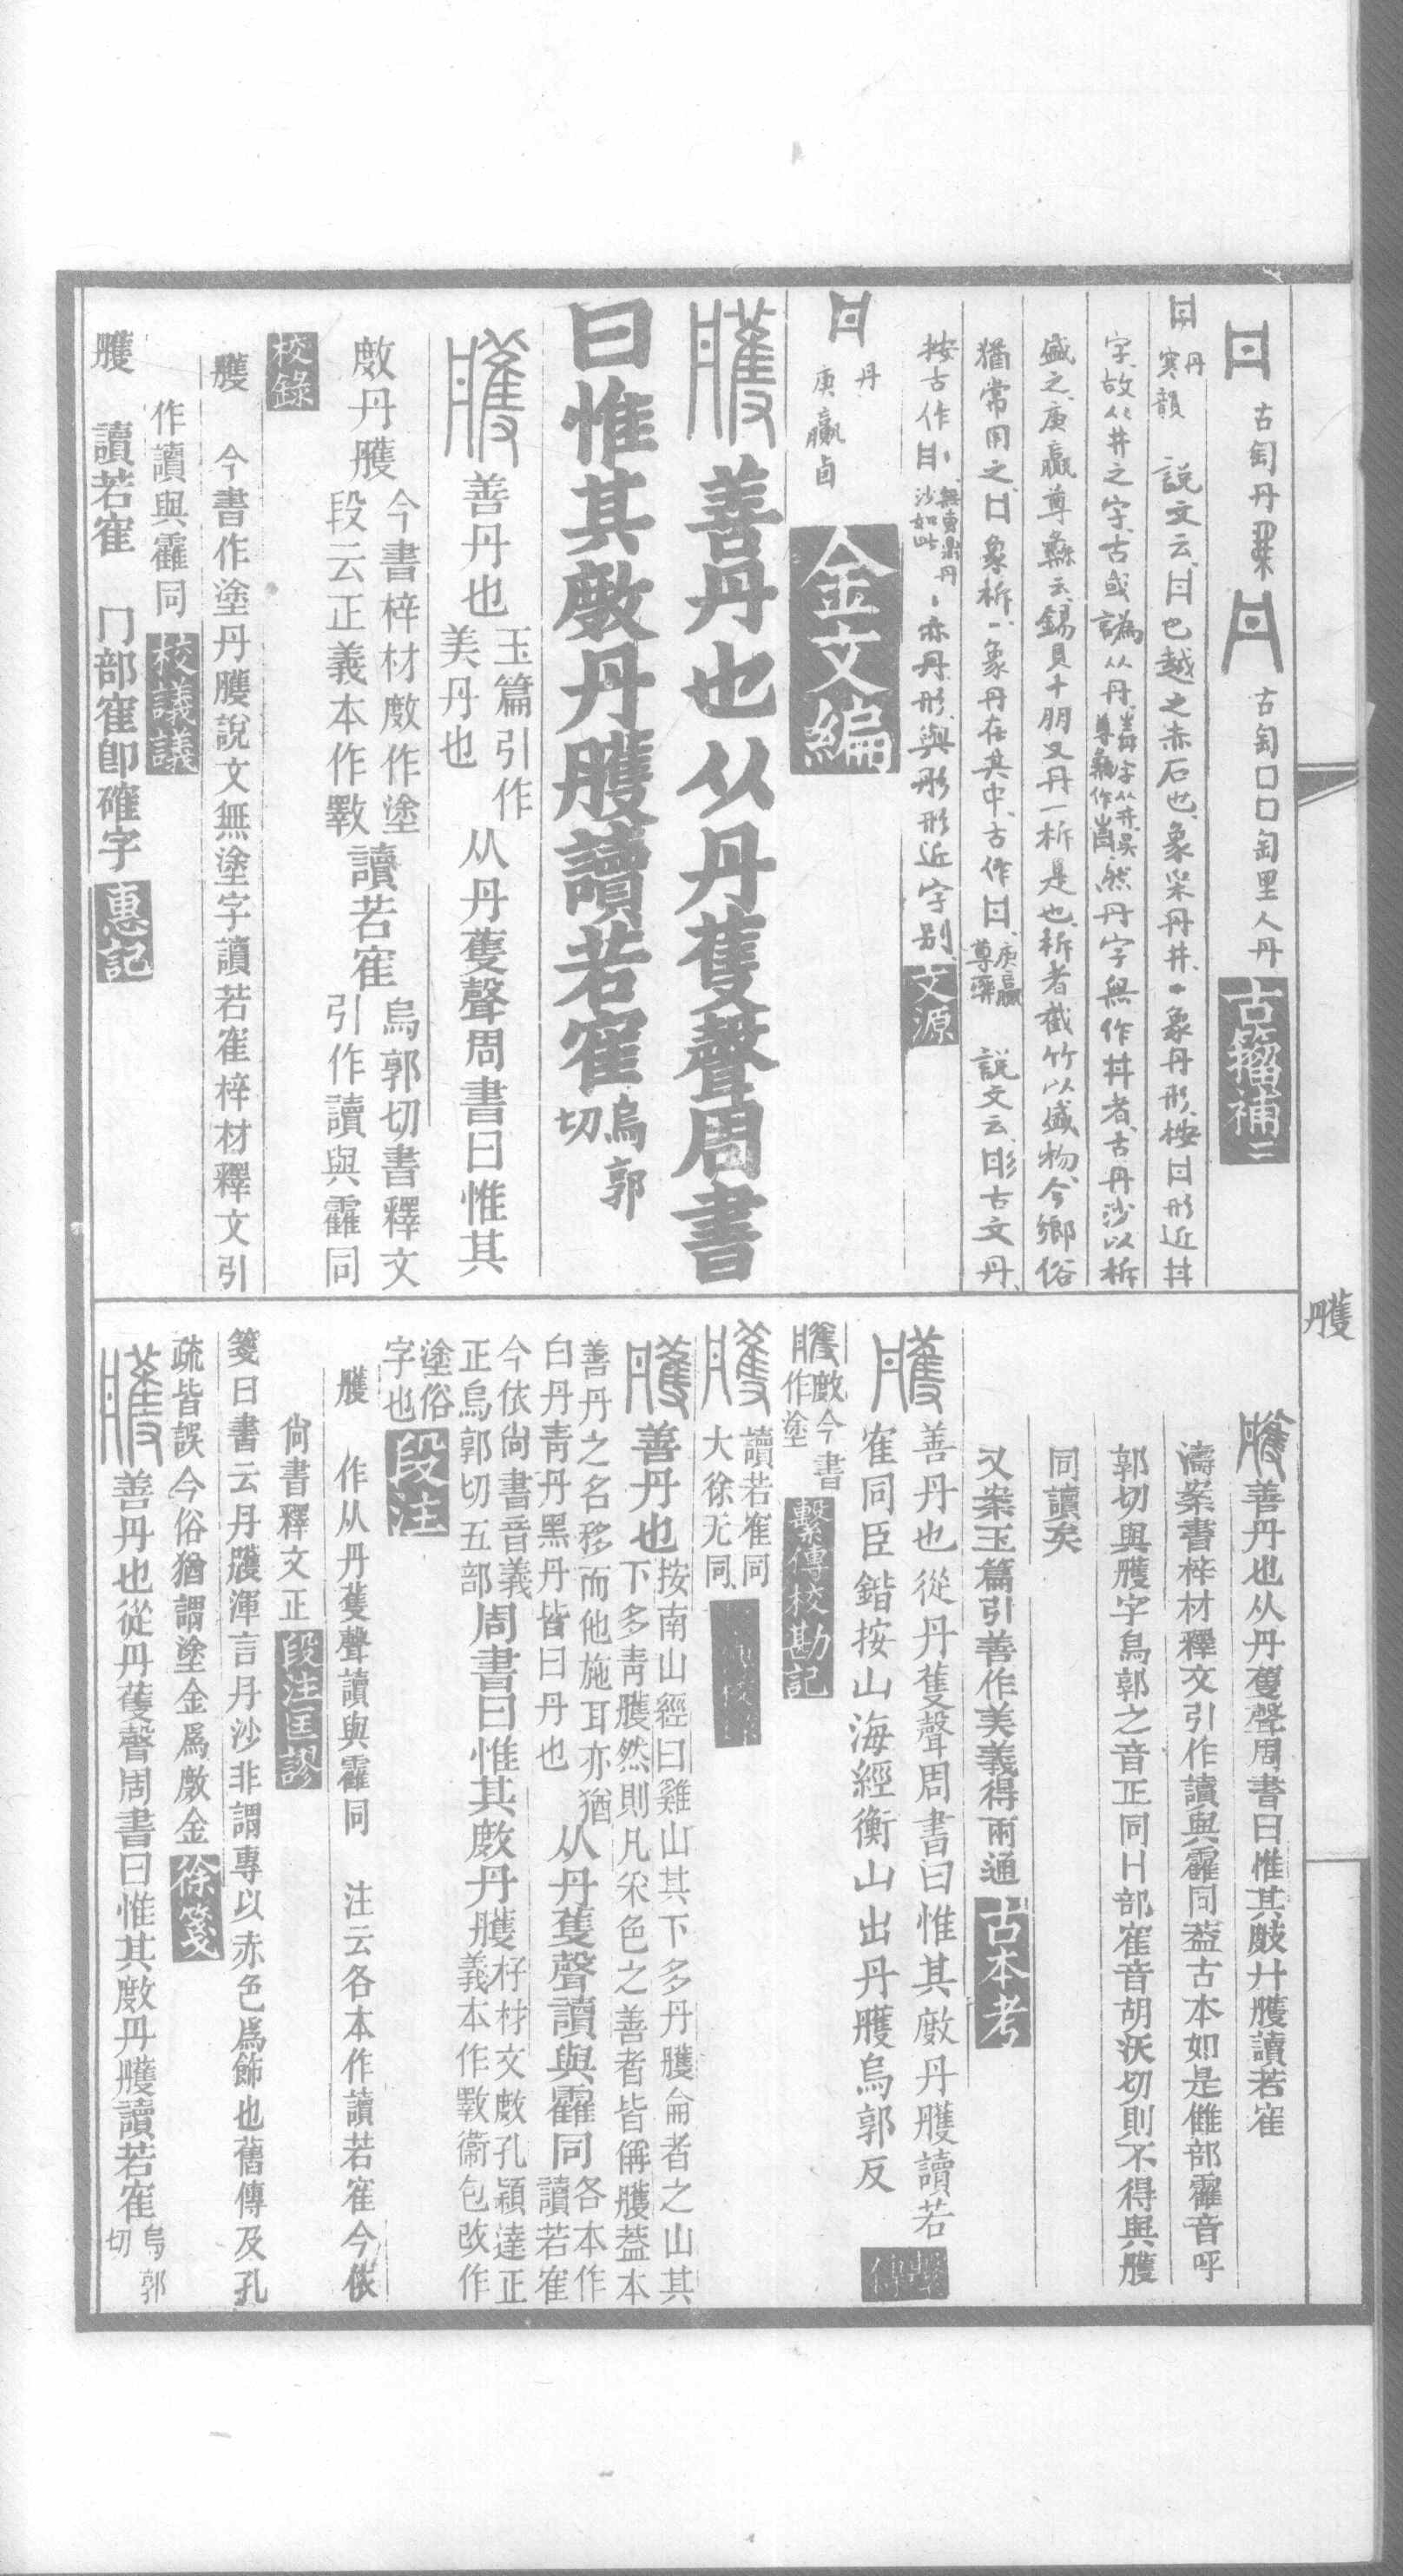 古匋丹𣏟 古匋囗囗匋里人丹 古籀補二
丹 寒韻 說文云日巴越之赤石也象采丹井一象丹形按日形近丼
字故从井之字古或譌从丹彝作然丹字無作丼者古丹沙以柝
盛之庚嬴尊彝云錫貝十朋又丹一柝是也柝者截竹以盛物今鄉俗
猶常用之日象柝一象丹在其中古作日庚嬴尊彝 說文云彤古文丹
按古作無叀鼎丹沙如此亦丹形與彤形近字別 文源
丹 庚嬴卣 金文編
雘 善丹也从丹蒦聲周書
曰惟其𢾖丹雘讀若寉烏郭切
雘 善丹也玉篇引作美丹也从丹蒦聲周書曰惟其
𢾖丹雘今書梓材𢾖作塗段云正義本作斁讀若寉烏郭切書釋文引作讀與霍同
校錄
雘 今書作塗丹雘說文無塗字讀若寉梓材釋文引
作讀與靃同 校議議
雘 讀若寉 冂部寉卽確字 惠記
雘
雘善丹也从丹蒦聲周書曰惟其𢾖丹雘讀若寉
濤案書梓材釋文引作讀與靃同葢古本如是雔部靃音呼
郭切與雘字烏郭之音正同冂部寉音胡沃切則不得與雘
同讀矣
又案玉篇引善作美義得兩通 古本考
雘 善丹也從丹蒦聲周書曰惟其𢾖丹雘讀若
寉同臣鍇按山海經衡山出丹雘烏郭反 繫傳
雘 𢾖今書作塗 繫傳校勘記
雘 讀若寉同大徐无同
雘 善丹也按南山經曰雞山其下多丹雘侖者之山其
下多青雘然則凡采色之善者皆偁雘葢本
善丹之名移而他施耳亦猶
白丹青丹黑丹皆曰丹也从丹蒦聲讀與靃同各本作讀若寉
今依尙書音義
正烏郭切五部周書曰惟其𢾖丹雘梓材文𢾖孔穎達正義本作斁衞包改作
塗俗字也 段注
雘 作从丹蒦聲讀與靃同 注云各本作讀若寉今依
尙書釋文正 段注匡謬
箋曰書云丹雘渾言丹沙非謂專以赤色爲飾也舊傳及孔
疏皆誤今俗猶謂塗金爲𢾖金 徐箋
雘 善丹也從丹蒦聲周書曰惟其𢾖丹雘讀若寉烏郭切